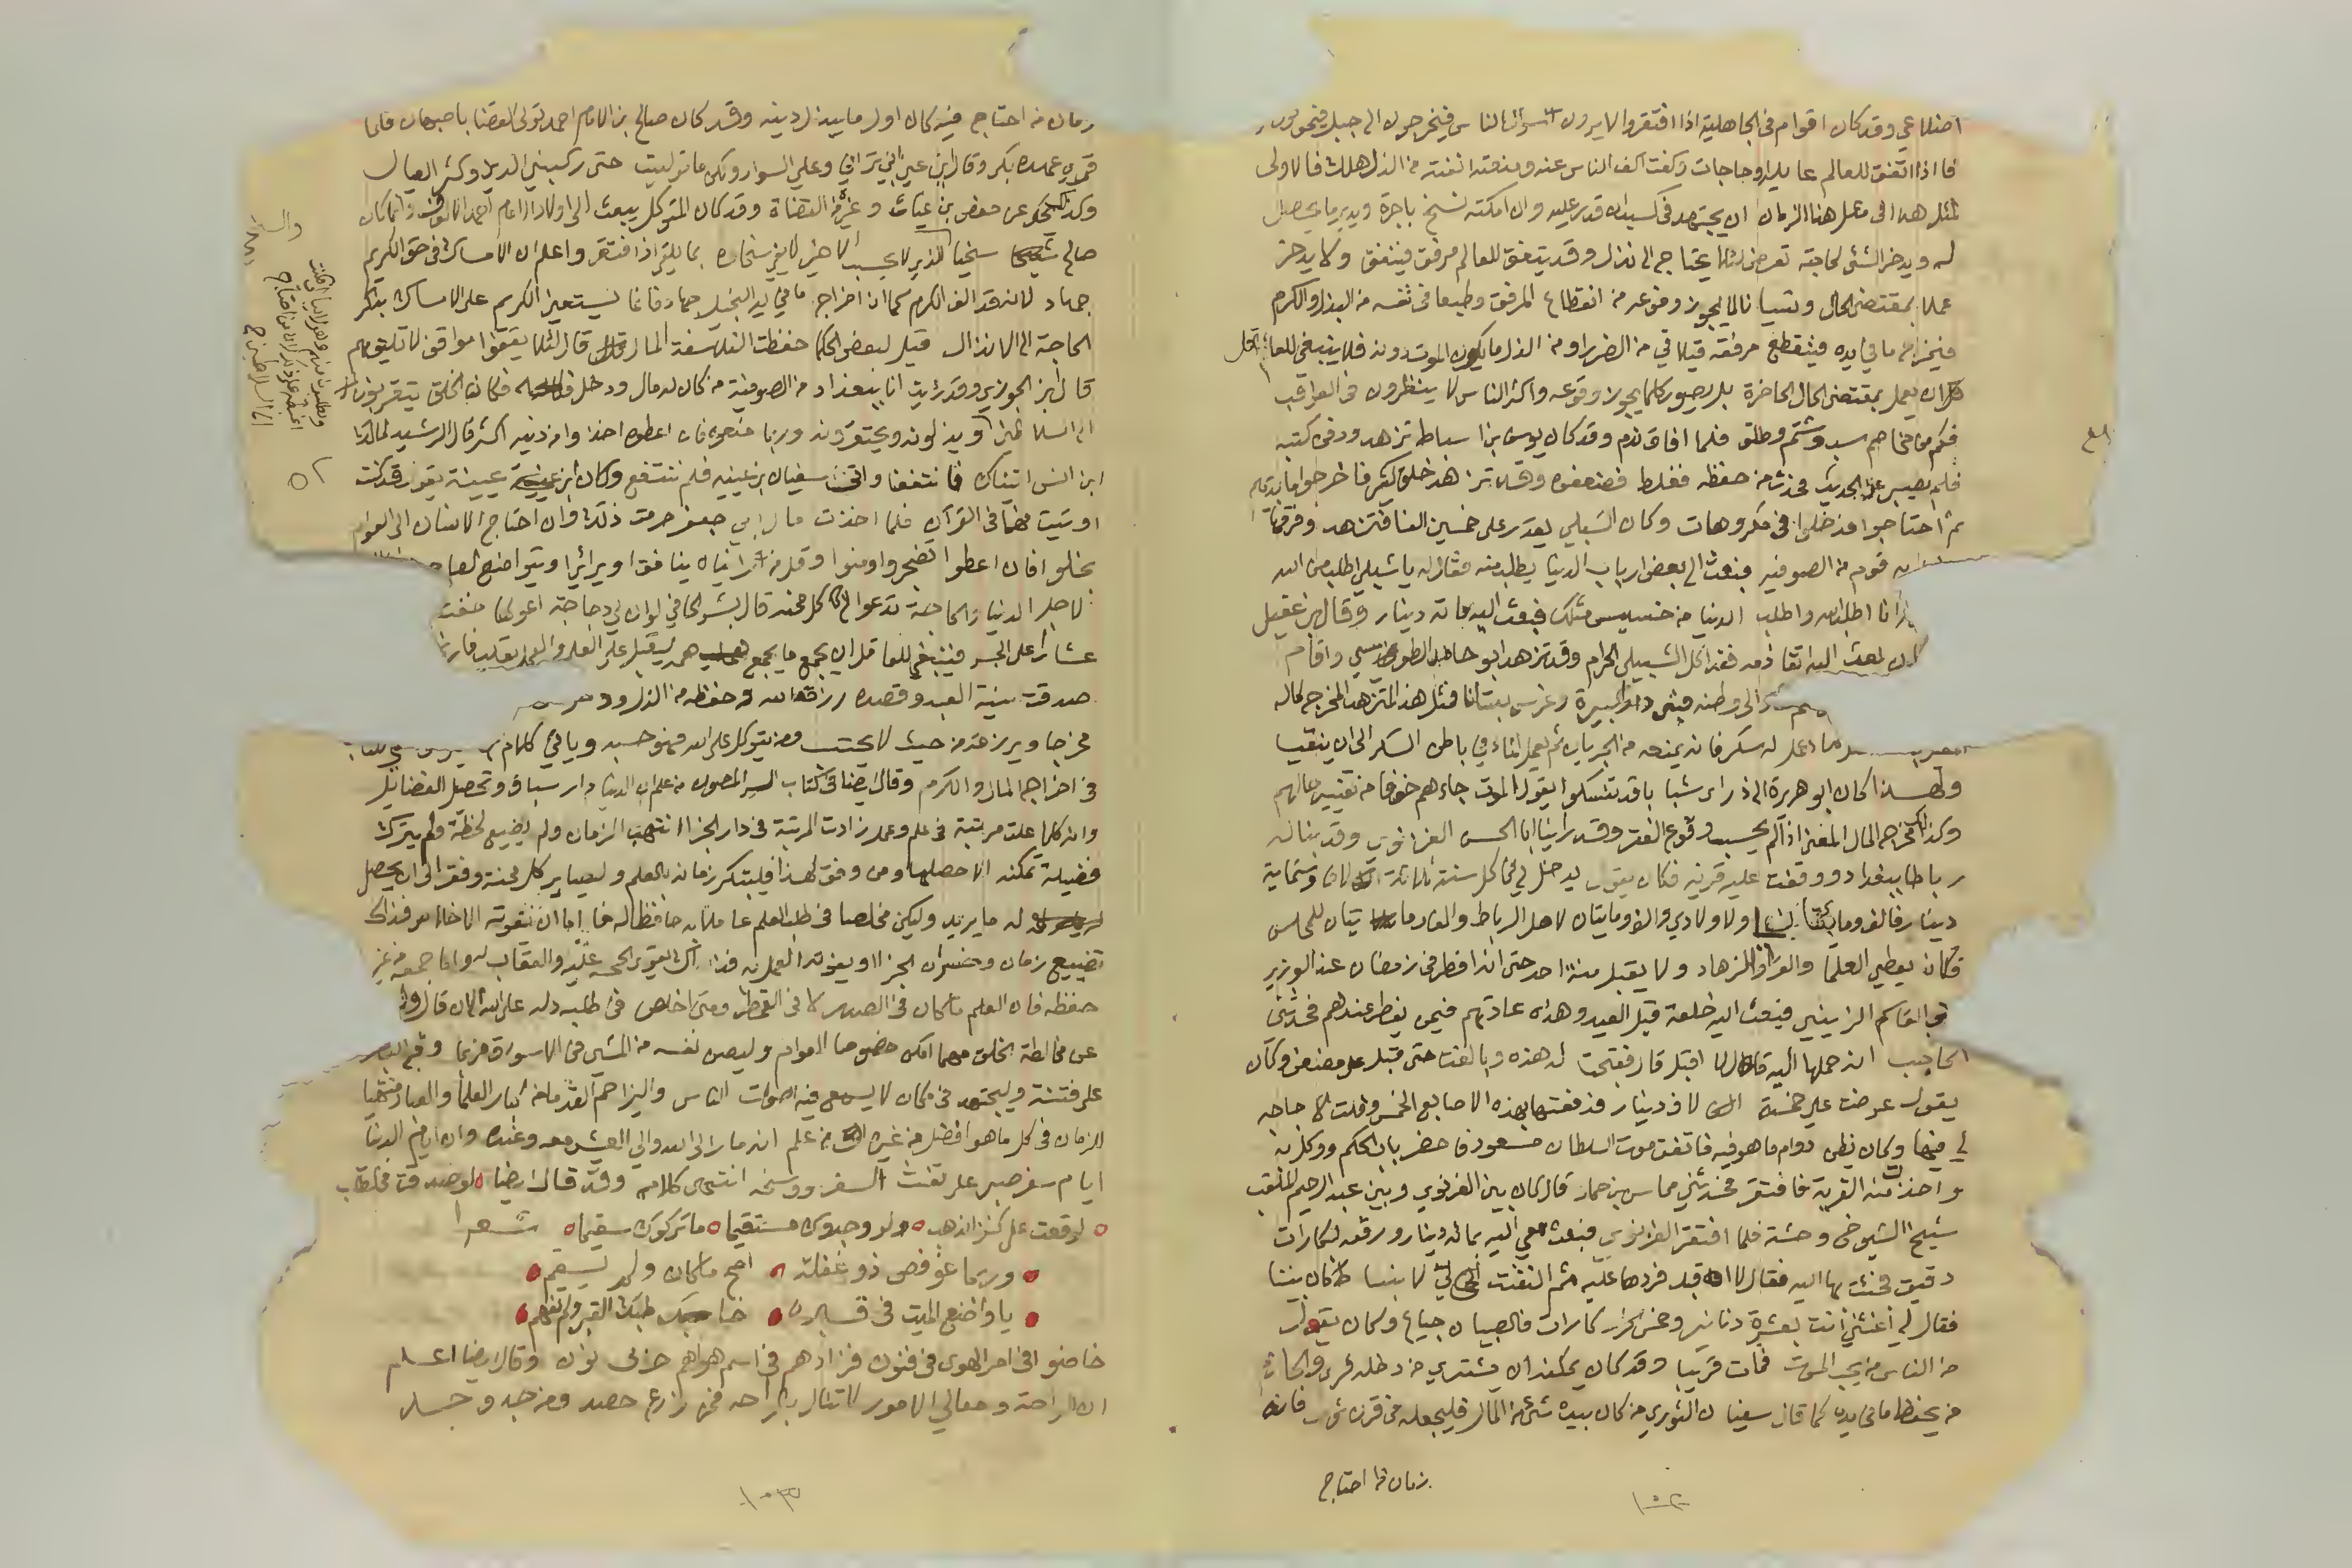 اضلاعي وقد كان اقوام في الجاهلية اذا افتقروا لا يرون سؤال الناس فيخرجون الى جبل فيموتون
فاذا اتفق للعالم عايلة وحاجات وكفت اكف الناس عنه ومنعته انفته من الذل هلك فالاولى
لمثل هذا في مثل هذا الزمان ان يجتهد في كسب ان قدر عليه وان امكنه نسخ باجرة ويدبر ما يحصل
له ويدخر الشئ لحاجة تعرض لئلا يحتاج الى نذل وقد يتفق للعالم مرفق فينفق ولا يدخر
عملا بمقتضى الحال ونسيانا لما يجوز وقوعه من انقطاع المرفق وطبعا في نفسه من البذل والكرم
فيخرج ما في يده فينقطع مرفقه فيلاقي من الضرر او من الذل ما يكون الموت دونه فلا ينبغي للعاقل
ان يعمل بمقتضى الحال الحاضرة بل يصور كلما يجوز وقوعه واكثر الناس لا ينظرون في العواقب
فكم من مخاصم سب وشتم وطلق فلما افاق ندم وقد كان يوسف بن اسباط تزهد ودفن كتبه
فلم يصبر عن الحديث فحدث من حفظه فغلط فضعفوه وقد تزهد خلق كثير فاخرجوا ما بيديهم
ثم احتاجوا فدخلوا في مكروهات وكان الشبلي يقدر على خمسين الفا فتزهد وفرقها
قوم من الصوفية فبعث الى بعض ارباب الدنيا يطلب منه فقال له يا شبلي اطلب من الله
انا اطلب الله واطلب الدنيا من خسيس مثلك فبعث اليه مائة دينار وقال ابن عقيل
ان بعث اليه اتقاء ذمه فقد اكل الشبلي الحرام وقد تزهد ابو حامد الطوسي واقام
الى وطنه فبنى دارا كبيرة وغرس بستانا فمثل هذا المتزهد المخرج لماله
ماء عمل له سكر فانه يمنعه من الجريان ثم يعمل الماء في باطن السكر الى ان ينقبا
ولهذا كان ابو هريرة اذا راى شبابا قد تنسكوا يقول الموت جاءهم خوفا من تغيير حالهم
وكذلك مخرج المال المغتر اذا لم يحسب وقوع الفقر وقد راينا ابا الحسن الغزنوي وقد بنا له
رباطا ببغداد ووقفت عليه قرية فكان يقول يدخل لي في كل سنة ثلاثة الاف وستماية
دينار فالف ومايتان لي ولاولادي والف ومايتان لاهل الرباط والف ومايتان للمجلس
فكان يعطي العلما والقراء والزهاد ولا يقبل منة احد حتى انه افطر في رمضان عند الوزير
ابي القاسم الزينبي فبعث اليه خلعة قبل العيد وهذه عادتهم فيمن يفطر عندهم فحدثني
الحاجب انه حملها اليه فقال لا اقبل قال ففتحت له هذه وبالغت حتى قبل على مضض وكان
يقول عرضت علي خمسة الاف دينار فدفعتها بهذه الاصابع الخمس وقلت لا حاجة
لي فيها وكان يظن دوام ما هو فيه فاتفق موت السلطان مسعود فاحضر باب الحكم ووكل به
واخذت منه القرية فافتقر فحدثني مماس بن حماد قال كان بين الغزنوي وبين عبد الرحيم الملقب
شيخ الشيوخ وحشة فلما افتقر الغزنوي فبعث معي اليه بمائة دينار ورقعه لكارات
دقيق فجئت بها اليه فقال لا اقبل فردها عليه ثم التفت لي لا بنسا كان بيننا
فقال لي اغثني انت بعشرة دنانير وخمس كارات فالصبيان جياع وكان يقول
من الناس من يحب الموت فمات قريبا وقد كان يمكنه ان يشتري من دخله قرى والحازم
من يحفظ ما في يده كما قال سفيان الثوري من كان بيده شئ من المال فليجعله في قرن ثور فانه
زمان من احتاج
١٠٢
زمان من احتاج فيه كان اول ما يبذل دينه وقد كان صالح بن الامام احمد تولى القضا باصبهان فلما
قري عهده بكى وقال اين عين ابي تراني وعلي السواد ولكن ما توليت حتى ركبني الدين وكثر العيال
وكذلك يحكى عن حفص بن غياث وغيره من القضاة وقد كان المتوكل يبعث الى اولاد الامام احمد الالوف وانما كان
صالح سخيا الذي لا يحسب
جهاد لانه قد الف الكرم كما ان اخراج ما في يد البخيل جهاد فانما يستعين الكريم على الامساك بذكر
الحاجة الى الانذال قيل لبعض الحكما حفظت الفلاسفة المال قال لئلا يقفوا مواقف لا تليق بهم
قال ابن الجوزي وقد رئيت انا ببغداد من الصوفية من كان له مال ودخل فكان الخلق يتقربون
الى السلاطين ويذلونه ويحتقرونه وربما منعوه فان اعطوه اخذوا من دينه اكثر قال الرشيد لمالك
ابن انس اتيناك فانتفعنا واتى سفيان بن عيينه فلم ننتفع وكان ابن عيينة يقول قد كنت
اوتيت فهما في القرآن فلما اخذت مال ابي جعفر حرمت ذلك وان احتاج الانسان الى العوام
بخلوا فان اعطوا تضجروا ومنوا وقل من رايناه ينافق او يرائي او يتواضع لصاحب
لاجل الدنيا والحاجة تدعو الى كل محنه قال بشر الحافي لو ان لي دجاجة اعولها خفت
عشارا على الجسر فينبغي للعاقل ان يجمع ما يجمع همه ليقبل على العلم والعمل بقلب فارغ
صدقت نية العبد وقصده رزقه الله وحفظه من الذل ودخل
مخرجا ويرزقه من حيث لا يحتسب ومن يتوكل على الله فهو حسبه وياتي كلام
في اخراج المال والكرم وقال ايضا في كتاب السر المصون من علم ان الدنيا دار سباق وتحصيل الفضائل
وانه كلما علت مرتبة في علم وعمل زادت المرتبة في دار الجزا انتهب الزمان ولم يضيع لحظة ولم يترك
فضيلة تمكنه الا حصلها ومن وفق لهذا فليبتكر زمانه بالعلم وليصابر كل محنة وفقر الى ان يحصل
له ما يريد وليكن مخلصا في طلب العلم عاملا به حافظا له فاما ان تفوته الاخلاص فذاك
تضييع زمان وخسران الجزا او يفوته العمل به فذاك يقوي الحجة عليه والعقاب له واما جمعه من غير
حفظه فان العلم ما كان في الصدر لا في القمطر ومتى اخلص في طلبه دله على الله
عن مخالطة الخلق مهما امكن خصوصا العوام وليصن نفسه من المشي في الاسواق فربما وقع البصر
على فتنة وليجتهد في مكان لا يسمع فيه اصوات الناس وليزاحم القدما من كبار العلما والعباد منتهبا
الزمان في كل ما هو افضل من غيره ومن علم انه مار الى الله والى العيش معه وعنده وان ايام الدنيا
ايام سفر صبر على تفث السفر ووسخه انتهى كلامه وقد قال ايضا لو صدقت في الطلب
لوقعت على كنز الذهب ولو وجدوك مستقيما ما تركوك سقيما شعرا
وربما غوفص ذو غفلة اصح ما كان ولم يسقم
يا واضع الميت في قبره خاطبك القبر ولم تفهم
خاضوا في امر الهوى في فنون فزادهم في اسم هواهم حرف نون وقال ايضا اعلم
ان الراحة ومعالي الامور لا تنال بالراحه فمن زرع حصد ومن جد وجد
١٠٣